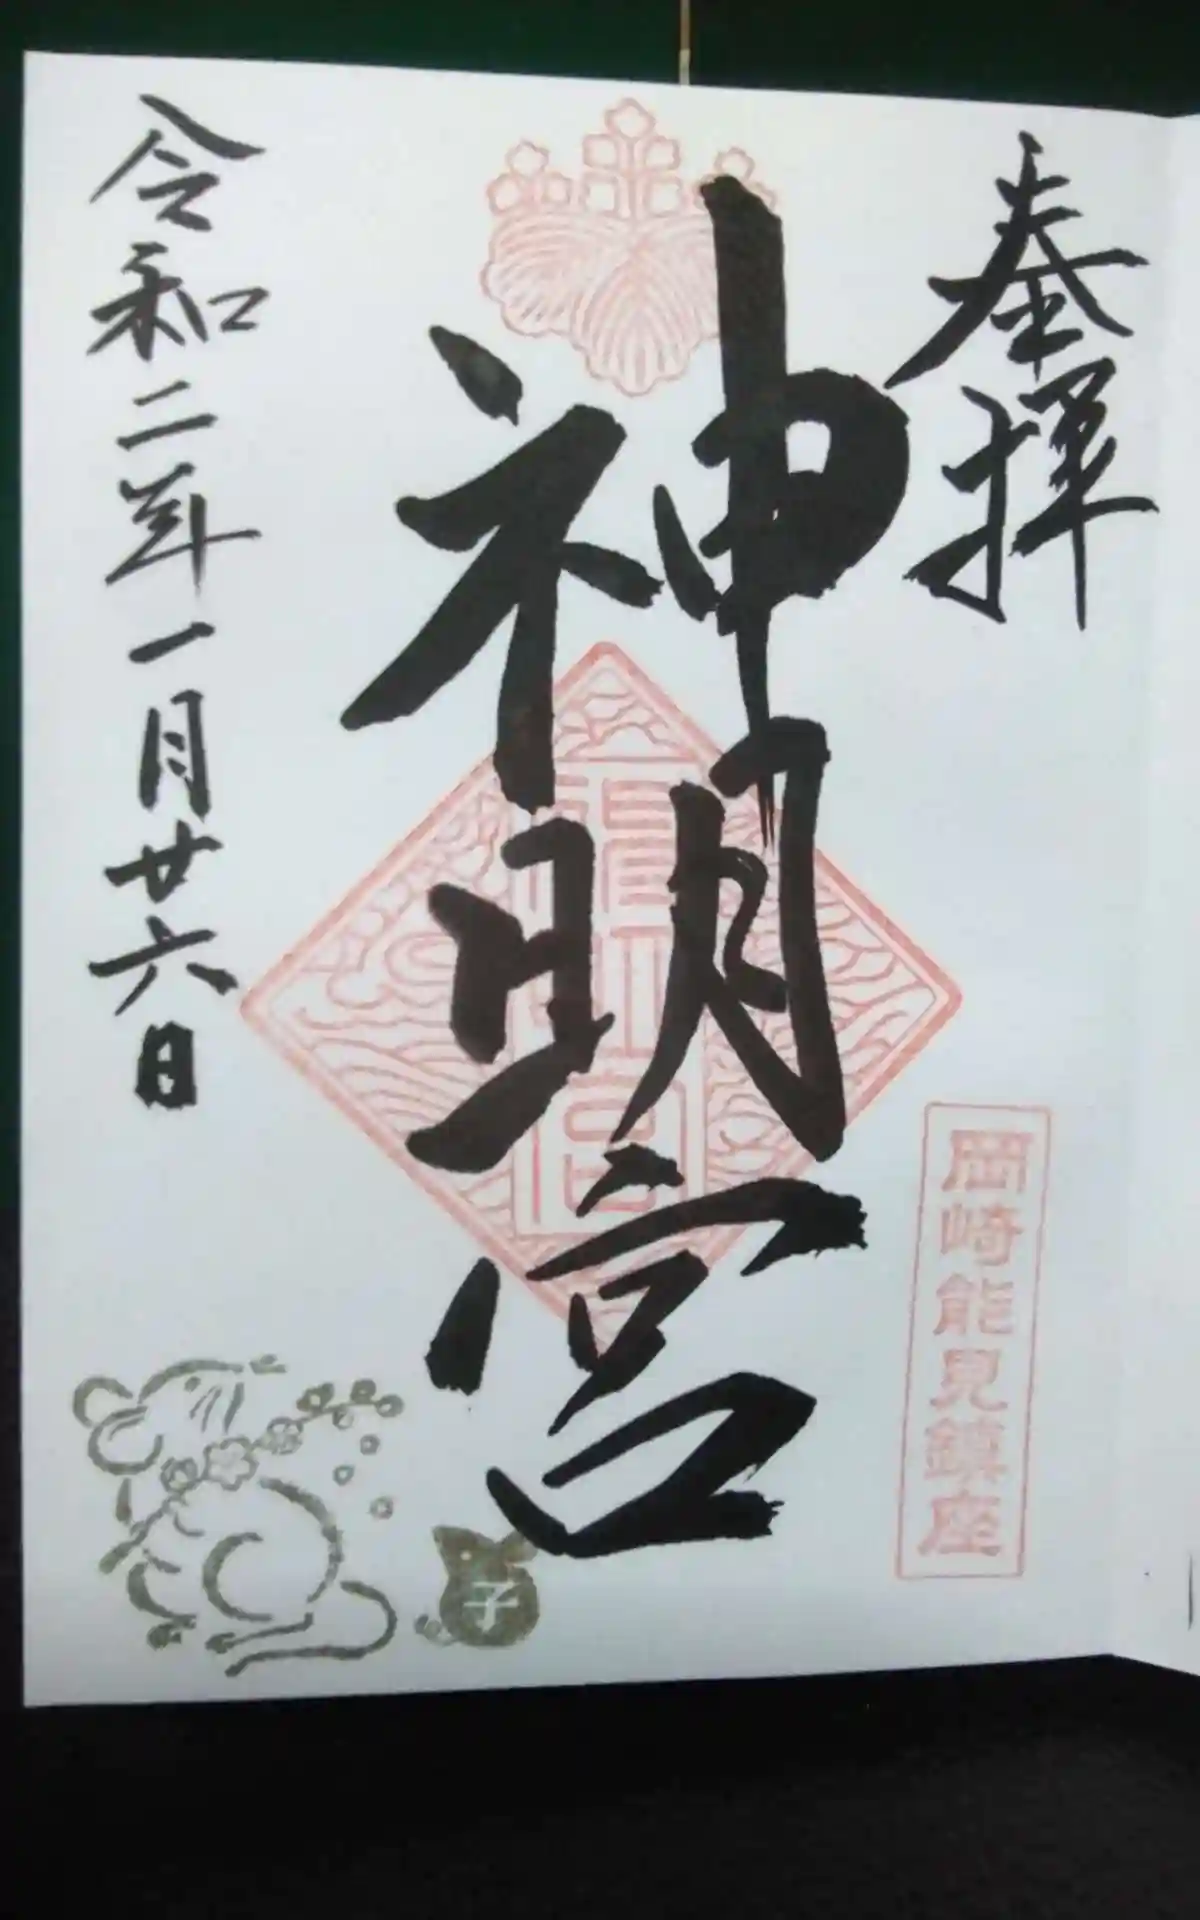 奉拝
岡崎能見鎮座
神明宮
令和二年一月廿六日
子